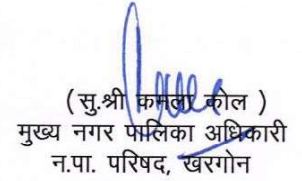 (सु.श्री कमला कोल )
मुख्य नगर पालिका अधिकारी
न.पा. परिषद, खरगोन